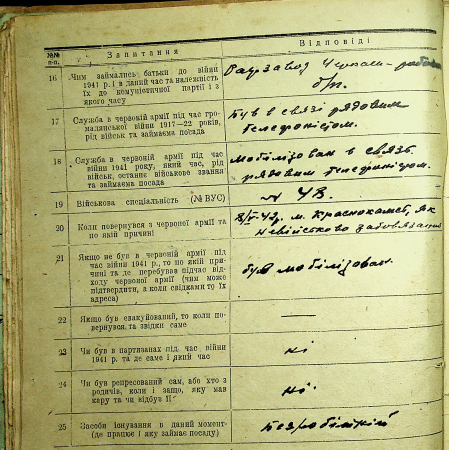 №№
п-п.
Запитання
Відповіді
16
Чим займались батьки до війни
1941 р. і в даний час та належність
їх до комуністичної партії і з
якого часу
б/п.
17
Служба в червоній армії під час гро-
мадянської війни 1917—22 років,
рід військ та займаєма посада
Був в связі рядовим
телефонїстом.
18
Служба в червоній армії під час
війни 1941 року, який час, рід
військ, останнє військове звання
та займаєма посада
мобілізован в связь
рядовим телефоністом.
19
Військова спеціальність (№ ВУС)
20
Коли повернувся з червоної армії та
по якій причині
м. Краснокамск, як
21
Якщо не був в червоній армії під
час війни 1941 р., то по якій при-
чині та де перебував підчас від-
ходу червоної армії (чим може
підтвердити, а коли свідками то їх
адреса)
був мобілізован.
22
Якщо був евакуйований, то коли по-
вернувся та звідки саме
—
23
Чи був в партизанах під час війни
1941 р. та де саме і який час
ні
24
Чи був репресований сам, або хто з
родичів, коли і защо, яку мав
кару та чи відбув її
ні.
25
Засоби існування в даний момент-
(де працює і яку займає посаду)
безробітній